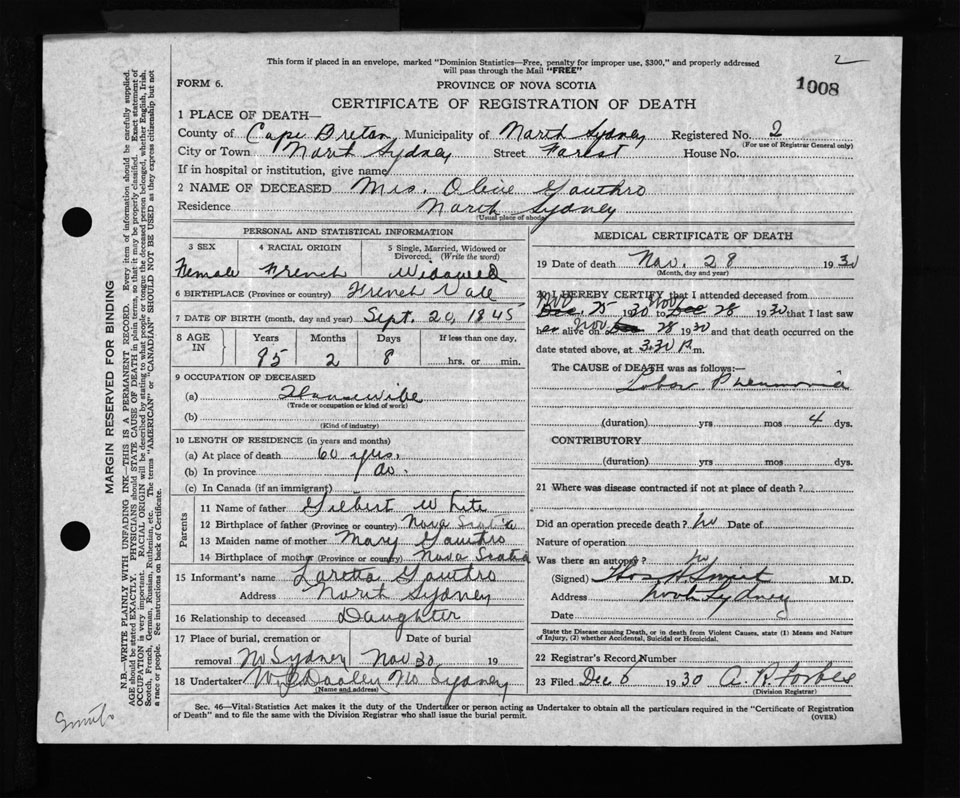 2
This form if placed in an envelope, marked "Dominion Statistics—Free, penalty for improper use, $300," and properly addressed
will pass through the Mail "FREE"
FORM 6.
PROVINCE OF NOVA SCOTIA
1008
CERTIFICATE OF REGISTRATION OF DEATH
1 PLACE OF DEATH—
County of Cape Breton Municipality of North Sydney Registered No. 2
(For use of Registrar General only)
City or Town North Sydney Street Forest House No.
If in hospital or institution, give name
2 NAME OF DECEASED Mrs. Olive Gauthro
Residence North Sydney
(Usual place of abode)
PERSONAL AND STATISTICAL INFORMATION
3 SEX
4 RACIAL ORIGIN
5 Single, Married, Widowed or
Divorced. (Write the word)
Female French Widowed
6 BIRTHPLACE (Province or country) French Vale
7 DATE OF BIRTH (month, day and year) Sept. 20, 1845
8 AGE
IN
Years Months Days If less than one day,
85 2 8 hrs. or min.
9 OCCUPATION OF DECEASED
(a) Housewife
(Trade or occupation or kind of work)
(b)
(Kind of industry)
10 LENGTH OF RESIDENCE (in years and months)
(a) At place of death 60 yrs.
(b) In province do.
(c) In Canada (if an immigrant)
Parents
11 Name of father Gilbert White
12 Birthplace of father (Province or country) Nova Scotia
13 Maiden name of mother Mary Gauthro
14 Birthplace of mother (Province or country) Nova Scotia
15 Informant's name Loretta Gauthro
Address North Sydney
16 Relationship to deceased Daughter
17 Place of burial, cremation or Date of burial
removal No Sydney Nov 30 19
18 Undertaker W J Dooley No Sydney
(Name and address)
MEDICAL CERTIFICATE OF DEATH
19 Date of death Nov. 28 1930
(Month, day and year)
20 I HEREBY CERTIFY that I attended deceased from
Nov Dec. 25 1930 to Nov Dec 28 1930 that I last saw
her alive on Nov Dec 28 1930 and that death occurred on the
date stated above, at 3.30 P.m.
The CAUSE of DEATH was as follows:—
Lobar Pneumonia
(duration) yrs mos 4 dys.
CONTRIBUTORY
(duration) yrs mos dys.
21 Where was disease contracted if not at place of death?
Did an operation precede death? no Date of
Nature of operation
Was there an autopsy? no
(Signed) M.D.
Address North Sydney
Date
State the Disease causing Death, or in death from Violent Causes, state (1) Means and Nature
of Injury, (2) whether Accidental, Suicidal or Homicidal.
22 Registrar's Record Number
23 Filed Dec 6 1930 A. R. Forbes
(Division Registrar)
Sec. 46—Vital Statistics Act makes it the duty of the Undertaker or person acting as Undertaker to obtain all the particulars required in the "Certificate of Registration
of Death" and to file the same with the Division Registrar who shall issue the burial permit.
(OVER)
MARGIN RESERVED FOR BINDING
N.B.—WRITE PLAINLY WITH UNFADING INK—THIS IS A PERMANENT RECORD. Every item of information should be carefully supplied.
AGE should be stated EXACTLY. PHYSICIANS should STATE CAUSE OF DEATH in plain terms, so that it may be properly classified. Exact statement of
OCCUPATION is very important. RACIAL ORIGIN will be described by stating to what people or tongue the deceased person belonged, whether English, Irish,
Scotch, French, German, Russian, Ruthenian, etc. The terms "AMERICAN" or "CANADIAN" SHOULD NOT BE USED as they express citizenship but not
a race or people. See instructions on back of Certificate.